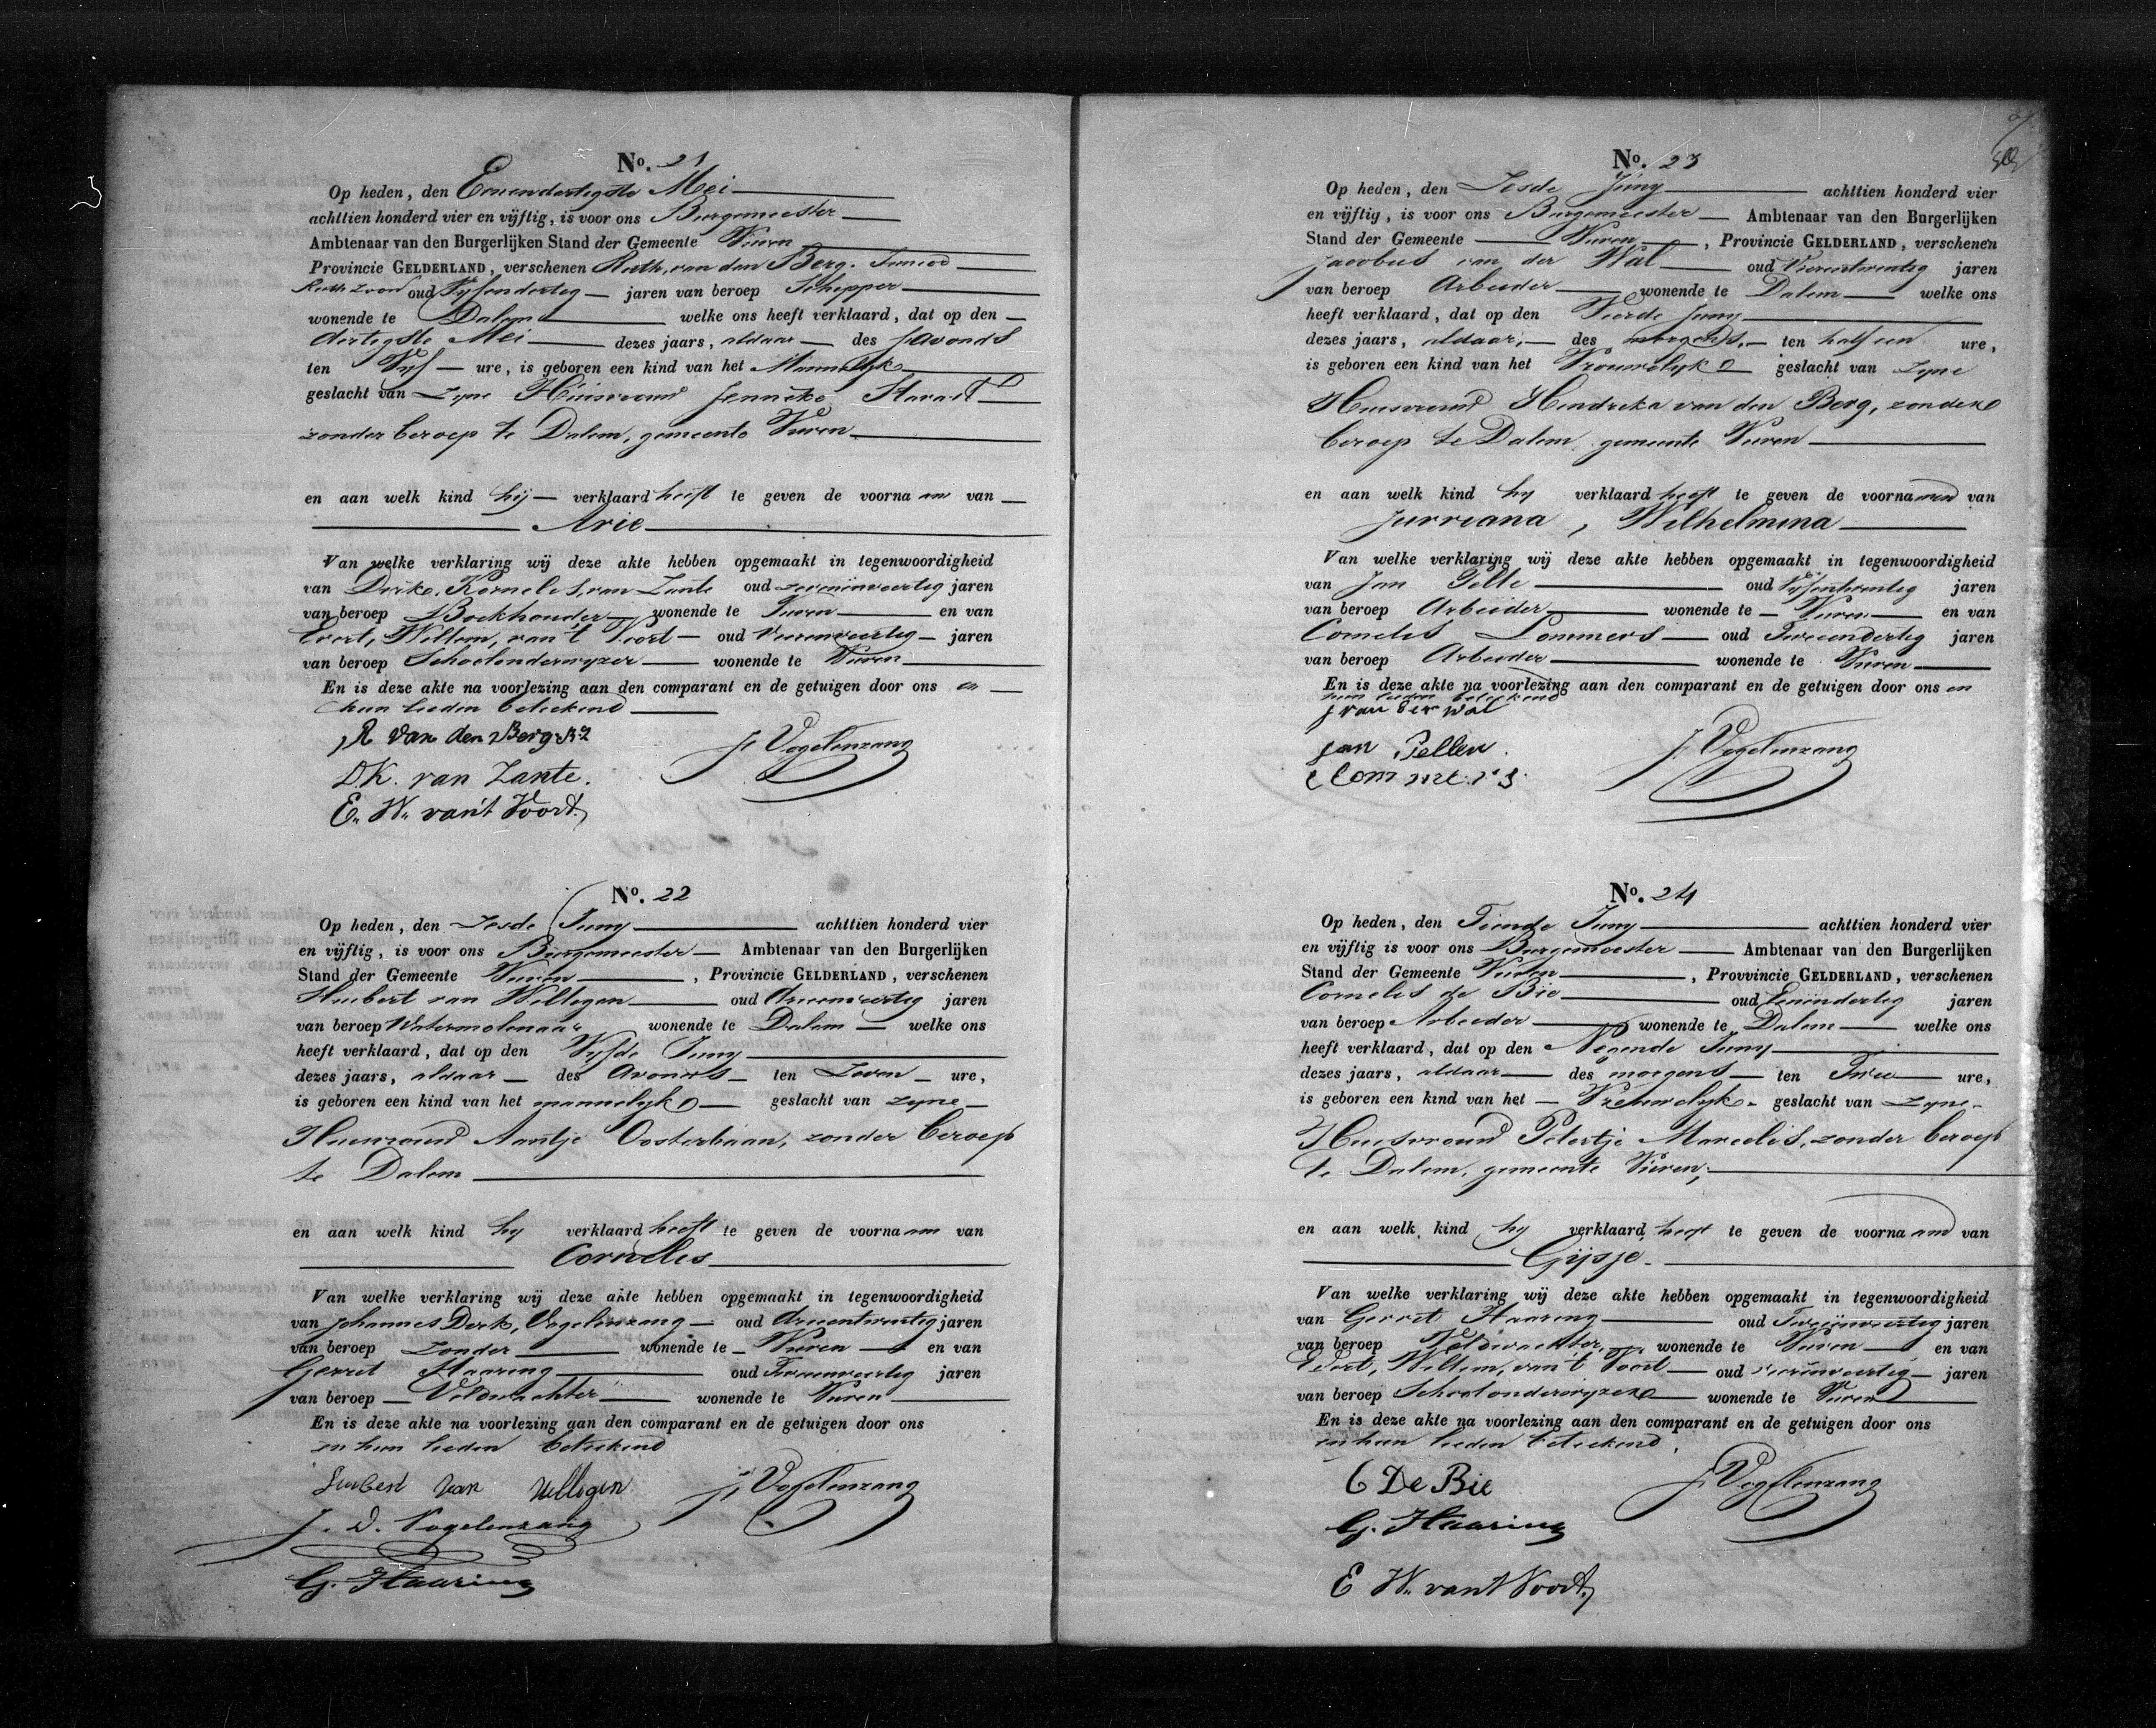 No. 21
Op heden, den Eenendertigste Mei
achttien honderd vier en vijftig, is voor ons Burgemeester
Ambtenaar van den Burgerlijken Stand der Gemeente Vuren
Provincie GELDERLAND, verschenen Ruth, van den Berg. Junior
Ruth Zoon oud Vyfendertig jaren van beroep Schepper
wonende te Dalem welke ons heeft verklaard, dat op den
dertigste Mei dezes jaars, aldaar des savonds
ten Vyf ure, is geboren een kind van het Mannelyke
geslacht van zyne Huisvrouw Jenneke
zonder beroep te Dalem, gemeente Vuren
en aan welk kind hij verklaard heeft te geven de voornaam van
Arie
Van welke verklaring wij deze akte hebben opgemaakt in tegenwoordigheid
van Dirk, Kornelis, van Zante oud zevenenveertig jaren
van beroep Boekhouder wonende te Vuren en van
Evert, Willem, van 't Voort oud Vierenveertig jaren
van beroep Schoolonderwyzer wonende te Vuren
En is deze akte na voorlezing aan den comparant en de getuigen door ons en
hun lieden beteekend
R van den Berg Rz
J. Vogelenzang
D.K. van Zante.
E. W. van't Voort.
No. 22
Op heden, den Zesde Juny achttien honderd vier
en vijftig, is voor ons Burgemeester Ambtenaar van den Burgerlijken
Stand der Gemeente Vuren, Provincie GELDERLAND, verschenen
Huibert van Willigen oud drieenveertig jaren
van beroep Watermolenaar wonende te Dalem welke ons
heeft verklaard, dat op den Vyfde Juny
dezes jaars, aldaar des avonds ten Zeven ure,
is geboren een kind van het mannelyke geslacht van zyne
Huisvrouw Aantje Oosterbaan, zonder beroep
te Dalem
en aan welk kind hy verklaard heeft te geven de voornaam van
Cornelis
Van welke verklaring wij deze akte hebben opgemaakt in tegenwoordigheid
van Johannes Dirk, Vogelenzang oud drieentwintig jaren
van beroep zonder wonende te Vuren en van
Gerrit Haaring oud Tweeenveertig jaren
van beroep Veldwachter wonende te Vuren
En is deze akte na voorlezing aan den comparant en de getuigen door ons
en hun lieden beteekend
Huibert van Willigen
J. Vogelenzang
J. D. Vogelenzang
G. Haaring
No. 23
Op heden, den Zesde Juny achttien honderd vier
en vijftig, is voor ons Burgemeester Ambtenaar van den Burgerlijken
Stand der Gemeente Vuren, Provincie GELDERLAND, verschenen
Jacobus van der Wal oud Vierentwentig jaren
van beroep Arbeider wonende te Dalem welke ons
heeft verklaard, dat op den Vierde Juny
dezes jaars, aldaar, des morgens, ten half een ure,
is geboren een kind van het Vrouwelyke geslacht van zyne
Huisvrouw Hendreka van den Berg, zonder
beroep te Dalem, gemeente Vuren
en aan welk kind hy verklaard heeft te geven de voornamen van
Jurriana, Wilhelmina
Van welke verklaring wij deze akte hebben opgemaakt in tegenwoordigheid
van Jan Pelle oud Vyfentwentig jaren
van beroep Arbeider wonende te Vuren en van
Cornelis Lommers oud Tweeendertig jaren
van beroep Arbeider wonende te Vuren
En is deze akte na voorlezing aan den comparant en de getuigen door ons en
hun lieden beteekend
J van der Wal
Jan Pellen.
J. Vogelenzang
C Lommers
No. 24
Op heden, den Tiende Juny achttien honderd vier
en vijftig is voor ons Burgemeester Ambtenaar van den Burgerlijken
Stand der Gemeente Vuren, Provincie GELDERLAND, verschenen
Cornelis de Bie oud Eenendertig jaren
van beroep Arbeider wonende te Dalem welke ons
heeft verklaard, dat op den Negende Juny
dezes jaars, aldaar des morgens ten Twee ure,
is geboren een kind van het Vrouwelyke geslacht van zyne
Huisvrouw Petertje Marcelis, zonder beroep
te Dalem, gemeente Vuren,
en aan welk kind hy verklaard heeft te geven de voornaam van
Gijsje
Van welke verklaring wij deze akte hebben opgemaakt in tegenwoordigheid
van Gerret Haaring oud Tweeenveertig jaren
van beroep Veldwachter wonende te Vuren en van
Evert, Willem, van 't Voort oud vierenveertig jaren
van beroep Schoolonderwyzer wonende te Vuren
En is deze akte na voorlezing aan den comparant en de getuigen door ons
en hun lieden beteekend.
C De Bie
J. Vogelenzang
G. Haaring
E W. van't Voort.